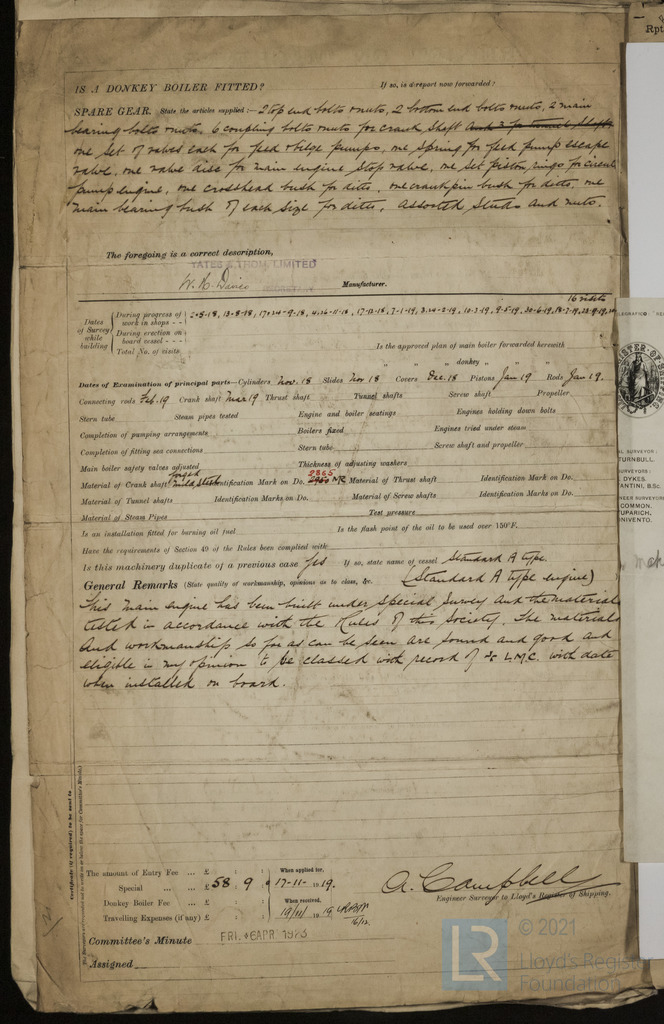 Rpt
IS A DONKEY BOILER FITTED? If so, is a report now forwarded?
SPARE GEAR. State the articles supplied:— 2 top end bolts & nuts, 2 bottom end bolts & nuts, 2 main
bearing bolts & nuts. 6 coupling bolts & nuts for crank shaft
one set of valves each for feed & bilge pumps, one spring for feed pump escape
valve, one valve disc for main engine stop valve, one set piston rings for
pump engine, one crosshead bush for ditto, one crankpin bush for ditto, one
main bearing bush of each size for ditto, assorted studs and nuts.
The foregoing is a correct description,
YATES & THOM, LIMITED
Manufacturer.
16 visits
Dates of Survey while building
During progress of work in shops - - 2-5-18, 13-8-18, 17-24-9-18, 4-26-11-18, 17-12-18, 7-1-19, 3-14-2-19, 10-3-19, 9-5-19, 20-6-19, 18-7-19, 23-9-19,
During erection on board vessel - - -
Total No. of visits
Is the approved plan of main boiler forwarded herewith
" " donkey " " "
Dates of Examination of principal parts—Cylinders Nov. 18 Slides Nov 18 Covers Dec. 18 Pistons Jan 19 Rods Jan 19.
Connecting rods Feb. 19 Crank shaft Mar 19 Thrust shaft Tunnel shafts Screw shaft Propeller
Stern tube Steam pipes tested Engine and boiler seatings Engines holding down bolts
Completion of pumping arrangements Boilers fixed Engines tried under steam
Completion of fitting sea connections Stern tube Screw shaft and propeller
Main boiler safety valves adjusted Thickness of adjusting washers
Material of Crank shaft forged mild steel Identification Mark on Do. 2865 NR Material of Thrust shaft Identification Mark on Do.
Material of Tunnel shafts Identification Marks on Do. Material of Screw shafts Identification Marks on Do.
Material of Steam Pipes Test pressure
Is an installation fitted for burning oil fuel Is the flash point of the oil to be used over 150°F.
Have the requirements of Section 49 of the Rules been complied with
Is this machinery duplicate of a previous case Yes If so, state name of vessel Standard A type.
General Remarks (State quality of workmanship, opinions as to class, &c. (Standard A type engine)
This main engine has been built under Special Survey and the material
tested in accordance with the Rules of this Society. The material
and workmanship so far as can be seen are sound and good and
eligible in my opinion to be classed with record of + L.M.C. with date
when installed on board.
Certificate (if required) to be sent to
The amount of Entry Fee ... £ : : When applied for,
Special ... ... £ 58 : 9 : 17-11-1919.
Donkey Boiler Fee ... £ : : When received,
Travelling Expenses (if any) £ : : 19/11/1919
A. Campbell
Engineer Surveyor to Lloyd's Register of Shipping.
Committee's Minute FRI. 6 APR. 1923
Assigned
LR
© 2021
Lloyd's Register
Foundation
TURNBULL.
DYKES.
TANTINI, B.Sc.
COMMON.
UPARICH,
NIVENTO.